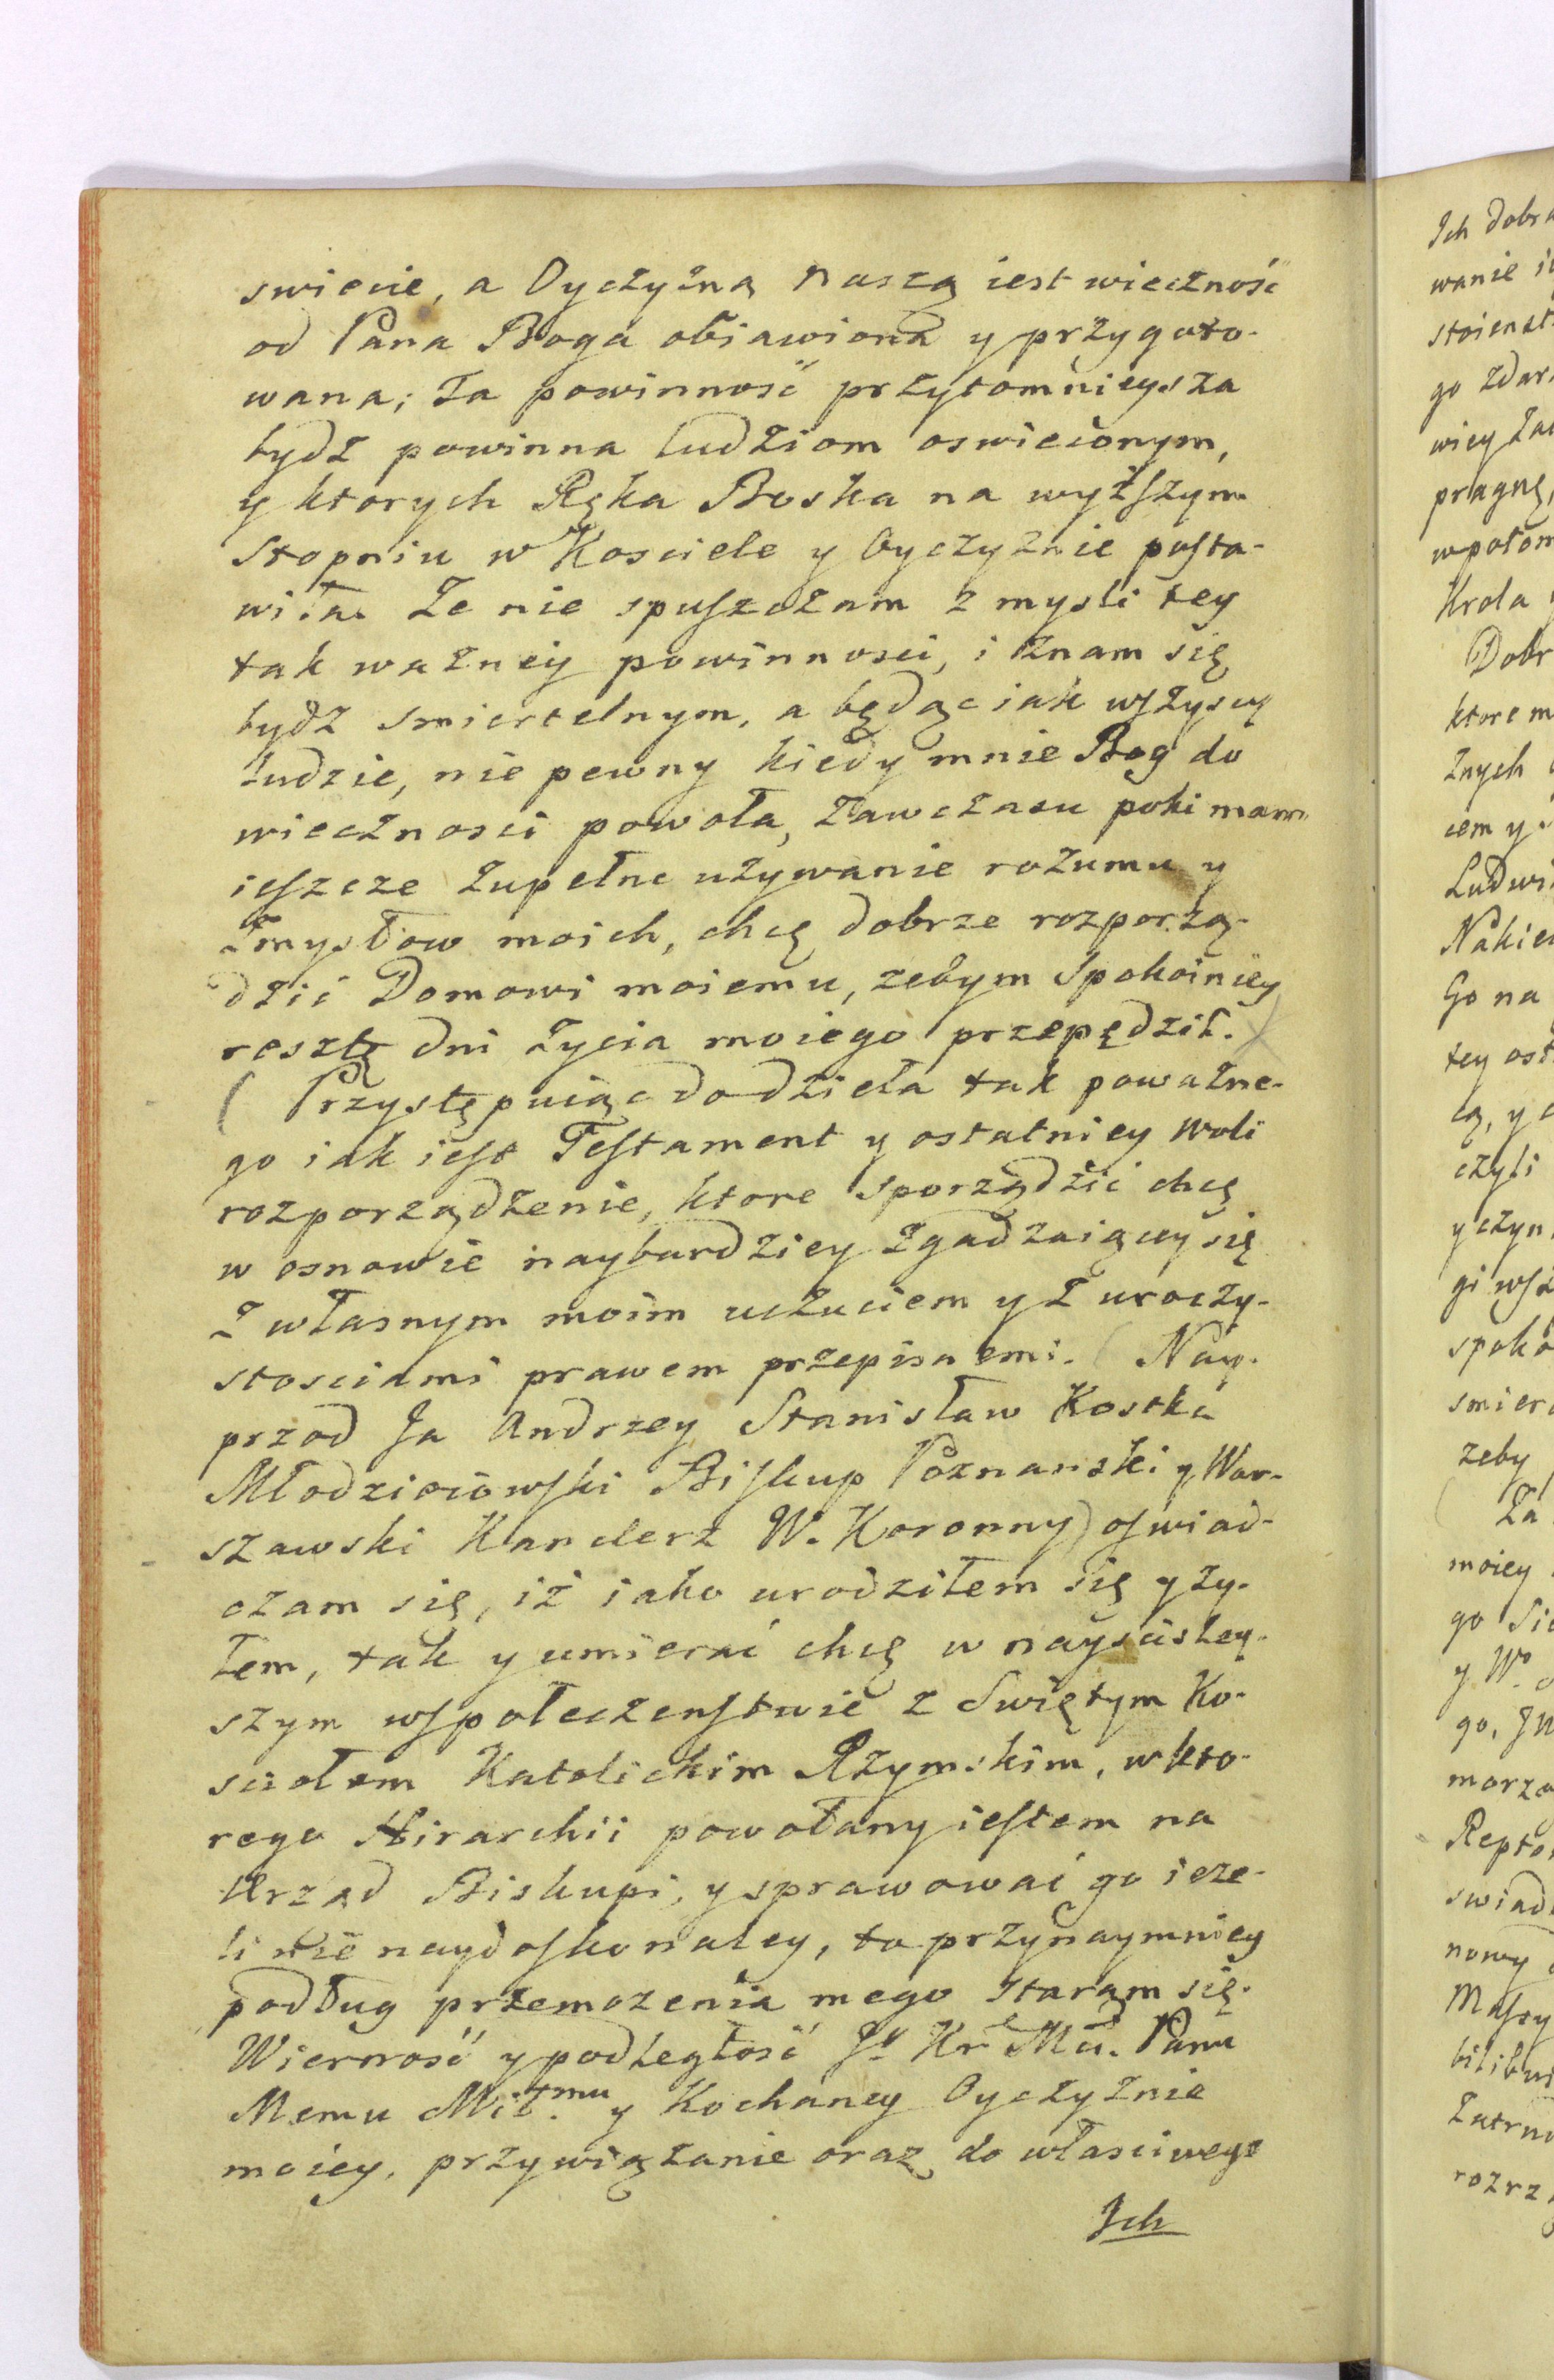 swiecie, a Oyczyzną naszą iest wieczność
od Pana Boga obiawiona y przygoto-
wana; Ta powinność przytomnieysza
bydz powinna ludziom oswieconym,
y ktorych Ręka Boska na wyższym
stopniu w Kosciele y Oyczyznie posta-
wiła. Ze nie spuszczam z mysli tey
tak ważney powinnosci, i znam się
bydz smiertelnym, a będąc iak wszyscy
ludzie, nie pewny kiedy mnie Bog do
wiecznosci powoła, zawczasu poki mam
ieszcze zupełne używanie rozumu y
zmysłow moich, chcę dobrze rozporzą-
dzić Domowi moiemu, zebym spokoiniey
resztę dni życia moiego przepędził.)
( Przystępuiąc do dzieła tak poważne-
go iak iest Testament y ostatniey woli
rozporządzenie, ktore sporządzić chcę
w osnowie naybardziey zgadzaiącey się
z własnym moim uczuciem y z uroczy-
stosciami prawem przepisanemi. ( Nay-
przod Ja Andrzey Stanisław Kostka
Młodzieiowski Biskup Poznanski y War-
szawski Kanclerz W. Koronny) oswiad-
czam się, iż iako urodziłem się y ży-
łem, tak y umierać chcę w nayscisley-
szym wspołeczenstwie z Swiętym Ko-
sciołem Katolickim Rzymskim, w kto-
rego Hirarchii powołany iestem na
Urząd Biskupi, y sprawować go ieże-
li nie naydoskonaley, to przynaymniey
podług przemożenia mego staram się.
Wierność y podległość Jo Kr Mci. Panu
Memu Miłmu y Kochaney Oyczyznie
moiey, przywiązanie oraz do własciwego
Ich
Ich dobra
wanie
go zdar
pragnę,
Krola
Dobr
ktore m
znych
cem y
Ludwi
Go na
tey ost
czyli
y czyn
spoko
smier
zeby
Za
moiey
go
y Wo
go,
marza
swiad
nowy
rozrz